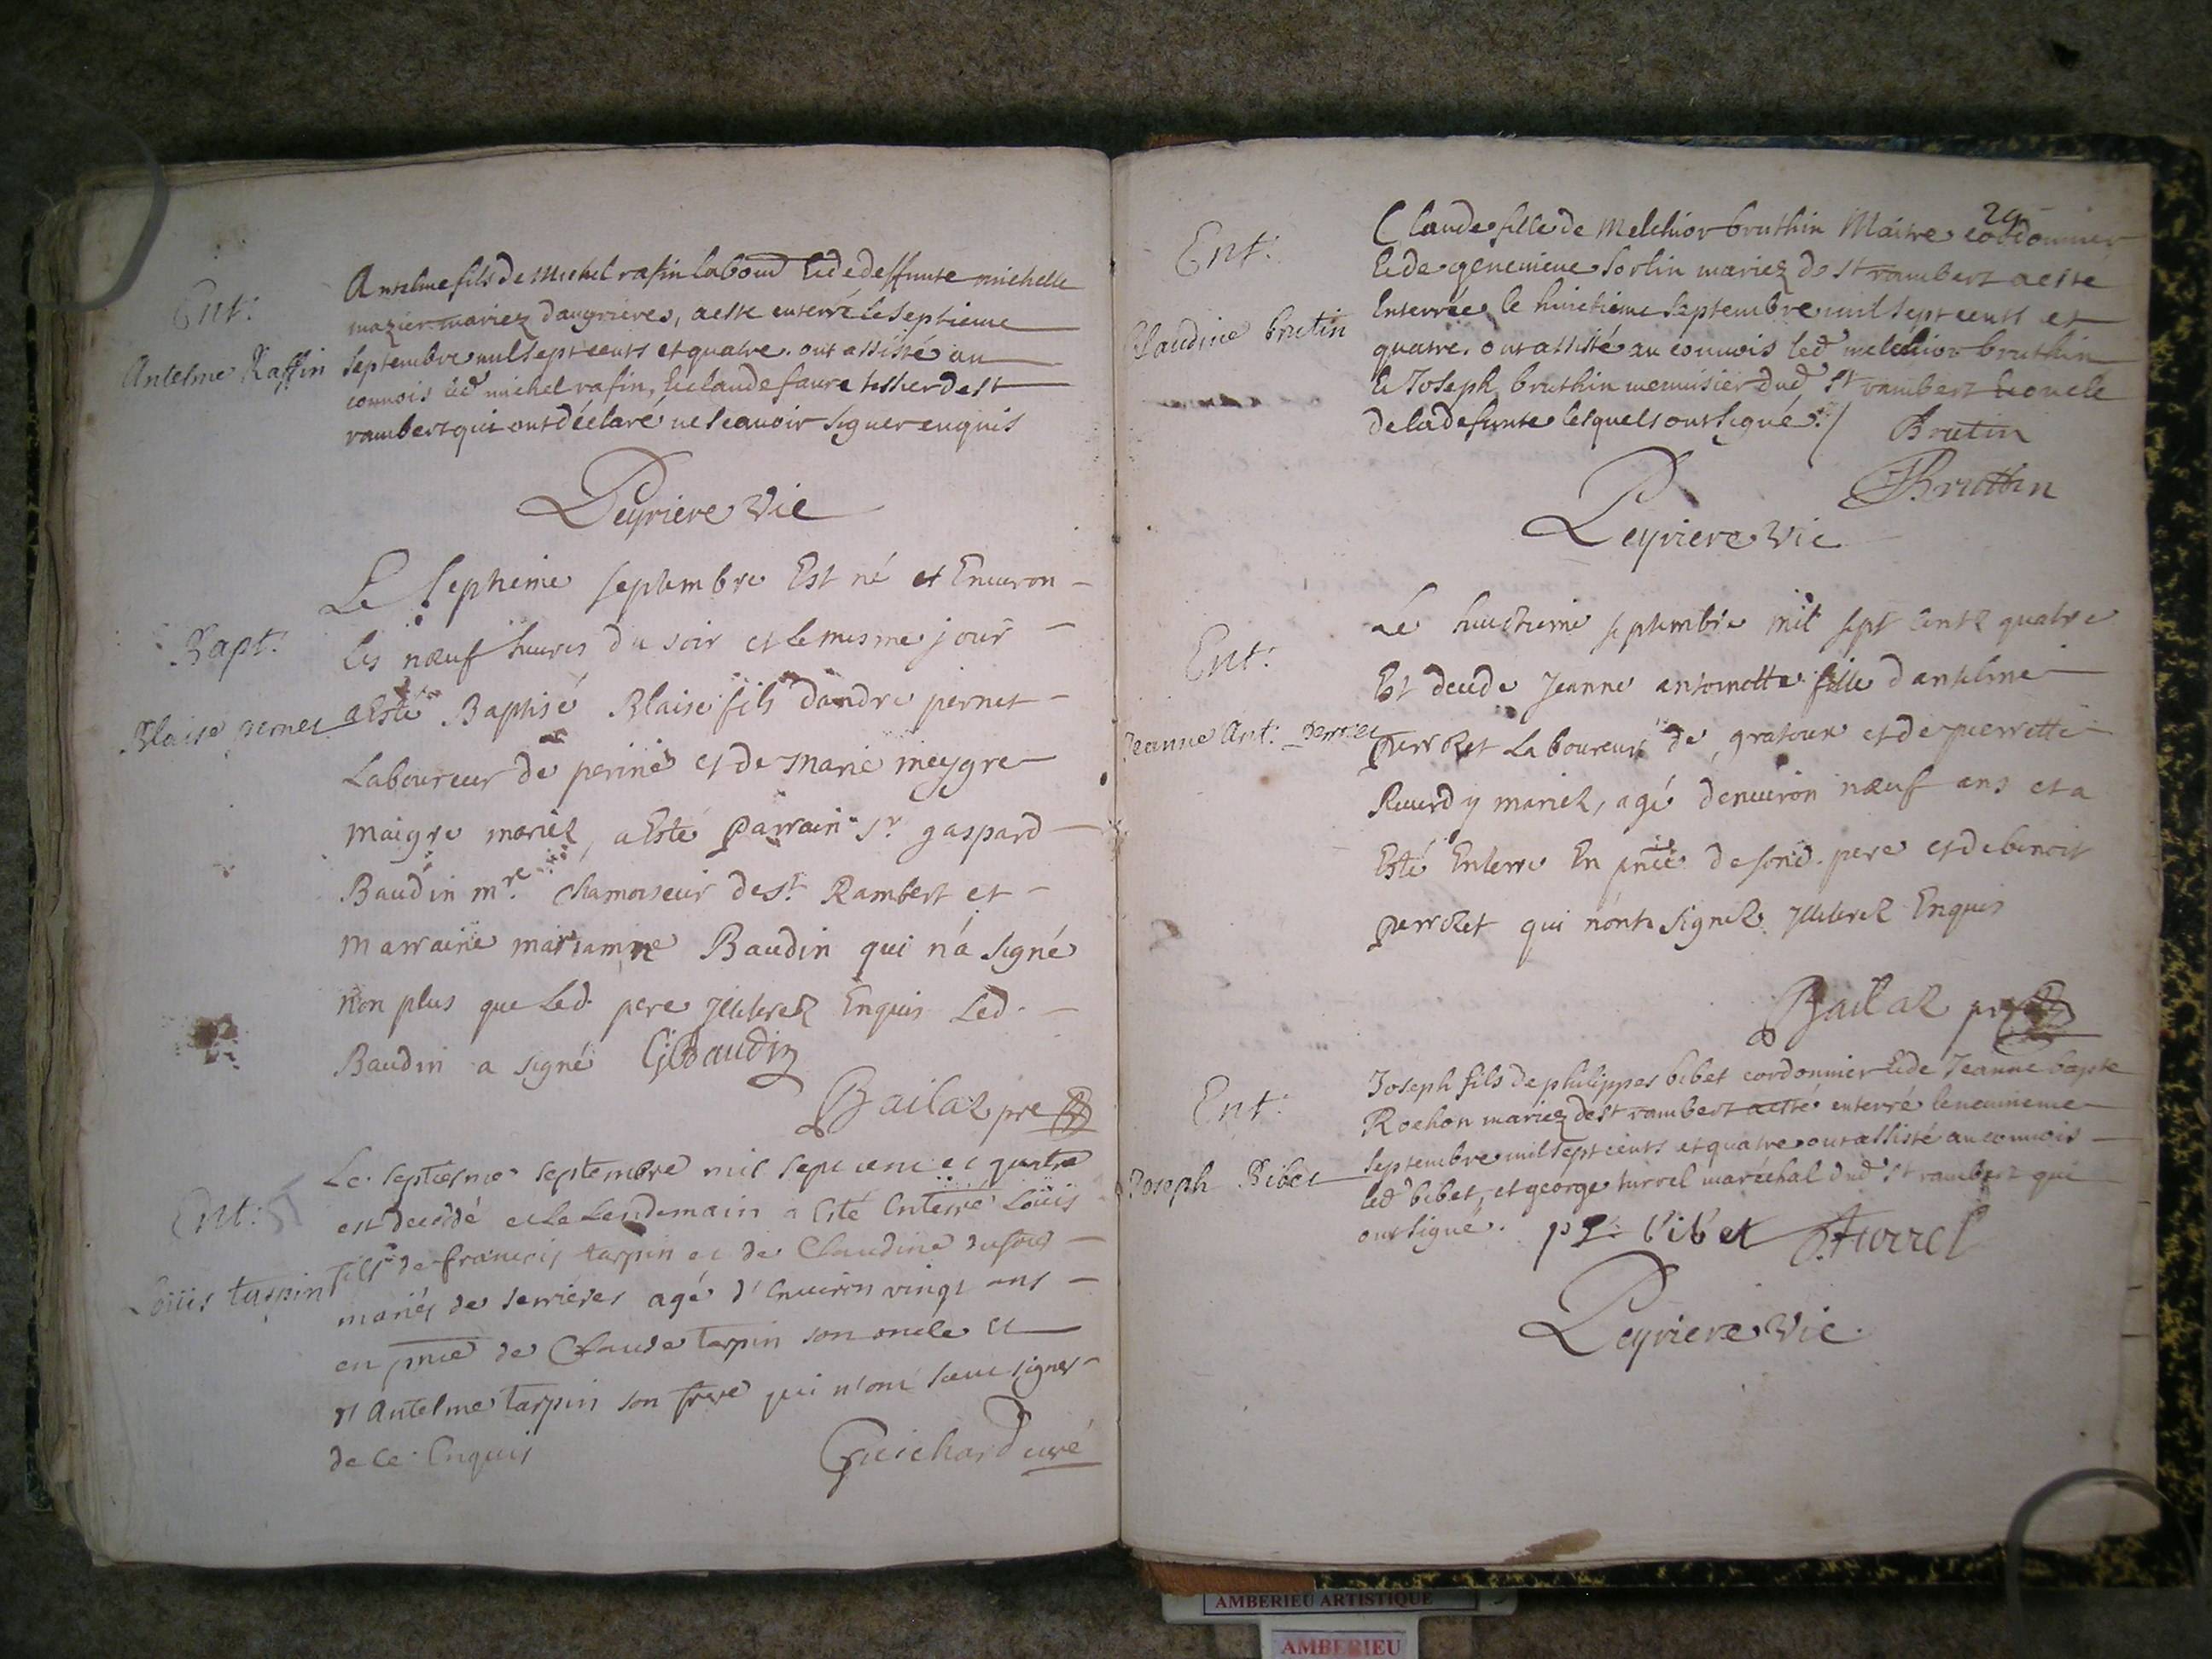 Ent.
Anselme Raffin
Anselme fils de Michel rafin labour et de deffunte michelle
mazier mariez d'augrieres, a esté enterré le septieme
septembre mil sept cents et quatre. ont assisté au
convois led michel rafin, et claude faure tessier de st
rambert qui ont déclaré ne scavoir signer enquis
Leyriere Vic
Bapt.
Blaise pernet
Le septieme septembre Est né et Environ
les nœuf heures du soir et le mesme jour
a Esté Baptisé Blaise fils dandré pernet
Laboureur de et de marie meygre
maigre mariez, a Esté parrain Sr gaspard
Baudin mre chamoiseur de St Rambert et
marraine mariamne Baudin qui n'a signé
non plus que Led. pere Enquis Led.
Baudin a signé GBaudin
Bailaz pre
Ent.
Loüis tarpin
Le septiesme septembre mil sept cent et quatre
est decedé et le Lendemain a Esté Enterré Loüis
fils de francois tarpin et de Claudine
mariés de serrieres agé d'Environ vingt ans
en pnce de Claude tarpin son oncle et
et Antelme tarpin son frere qui n'ont sceu signer
de ce Enquis
Guichard curé
29
Ent.
Claudine brutin
Claude fille de Melchior bruthin Maitre cordonnier
et de genevieve sorlin mariez de st rambert a esté
Enterrée le huictieme septembre mil sept cents et
quatre. ont assisté au convois led melchior bruthin
et Joseph bruthin menuisier dud st rambert et oncle
de la defunte lesquels ont signé./ Brutin
JBruttin
Leyriere Vic
Ent.
Jeanne Ant. perrozet
Le huictieme septembre mil sept Cents quatre
Est decede Jeanne antoinette fille d'anthelme
perrozet Laboureur de gratoux et de pierrette
Ravard y mariez, agé denviron nœuf ans et a
Esté Enterre En pnce de sond. pere et de benoit
perrozet qui n'ont signez Enquis
Bailaz pre
Ent.
Joseph Bibet
Joseph fils de philippes bibet cordonnier et de Jeanne bapte
Rochon mariez de st rambert a esté enterré le neuvieme
septembre mil sept cents et quatre ont assisté au convois
led bibet, et george turrel maréchal dud st rambert qui
ont signé. bibet Turrel
Leyriere Vic.
AMBERIEU ARTISTIQUE
AMBERIEU